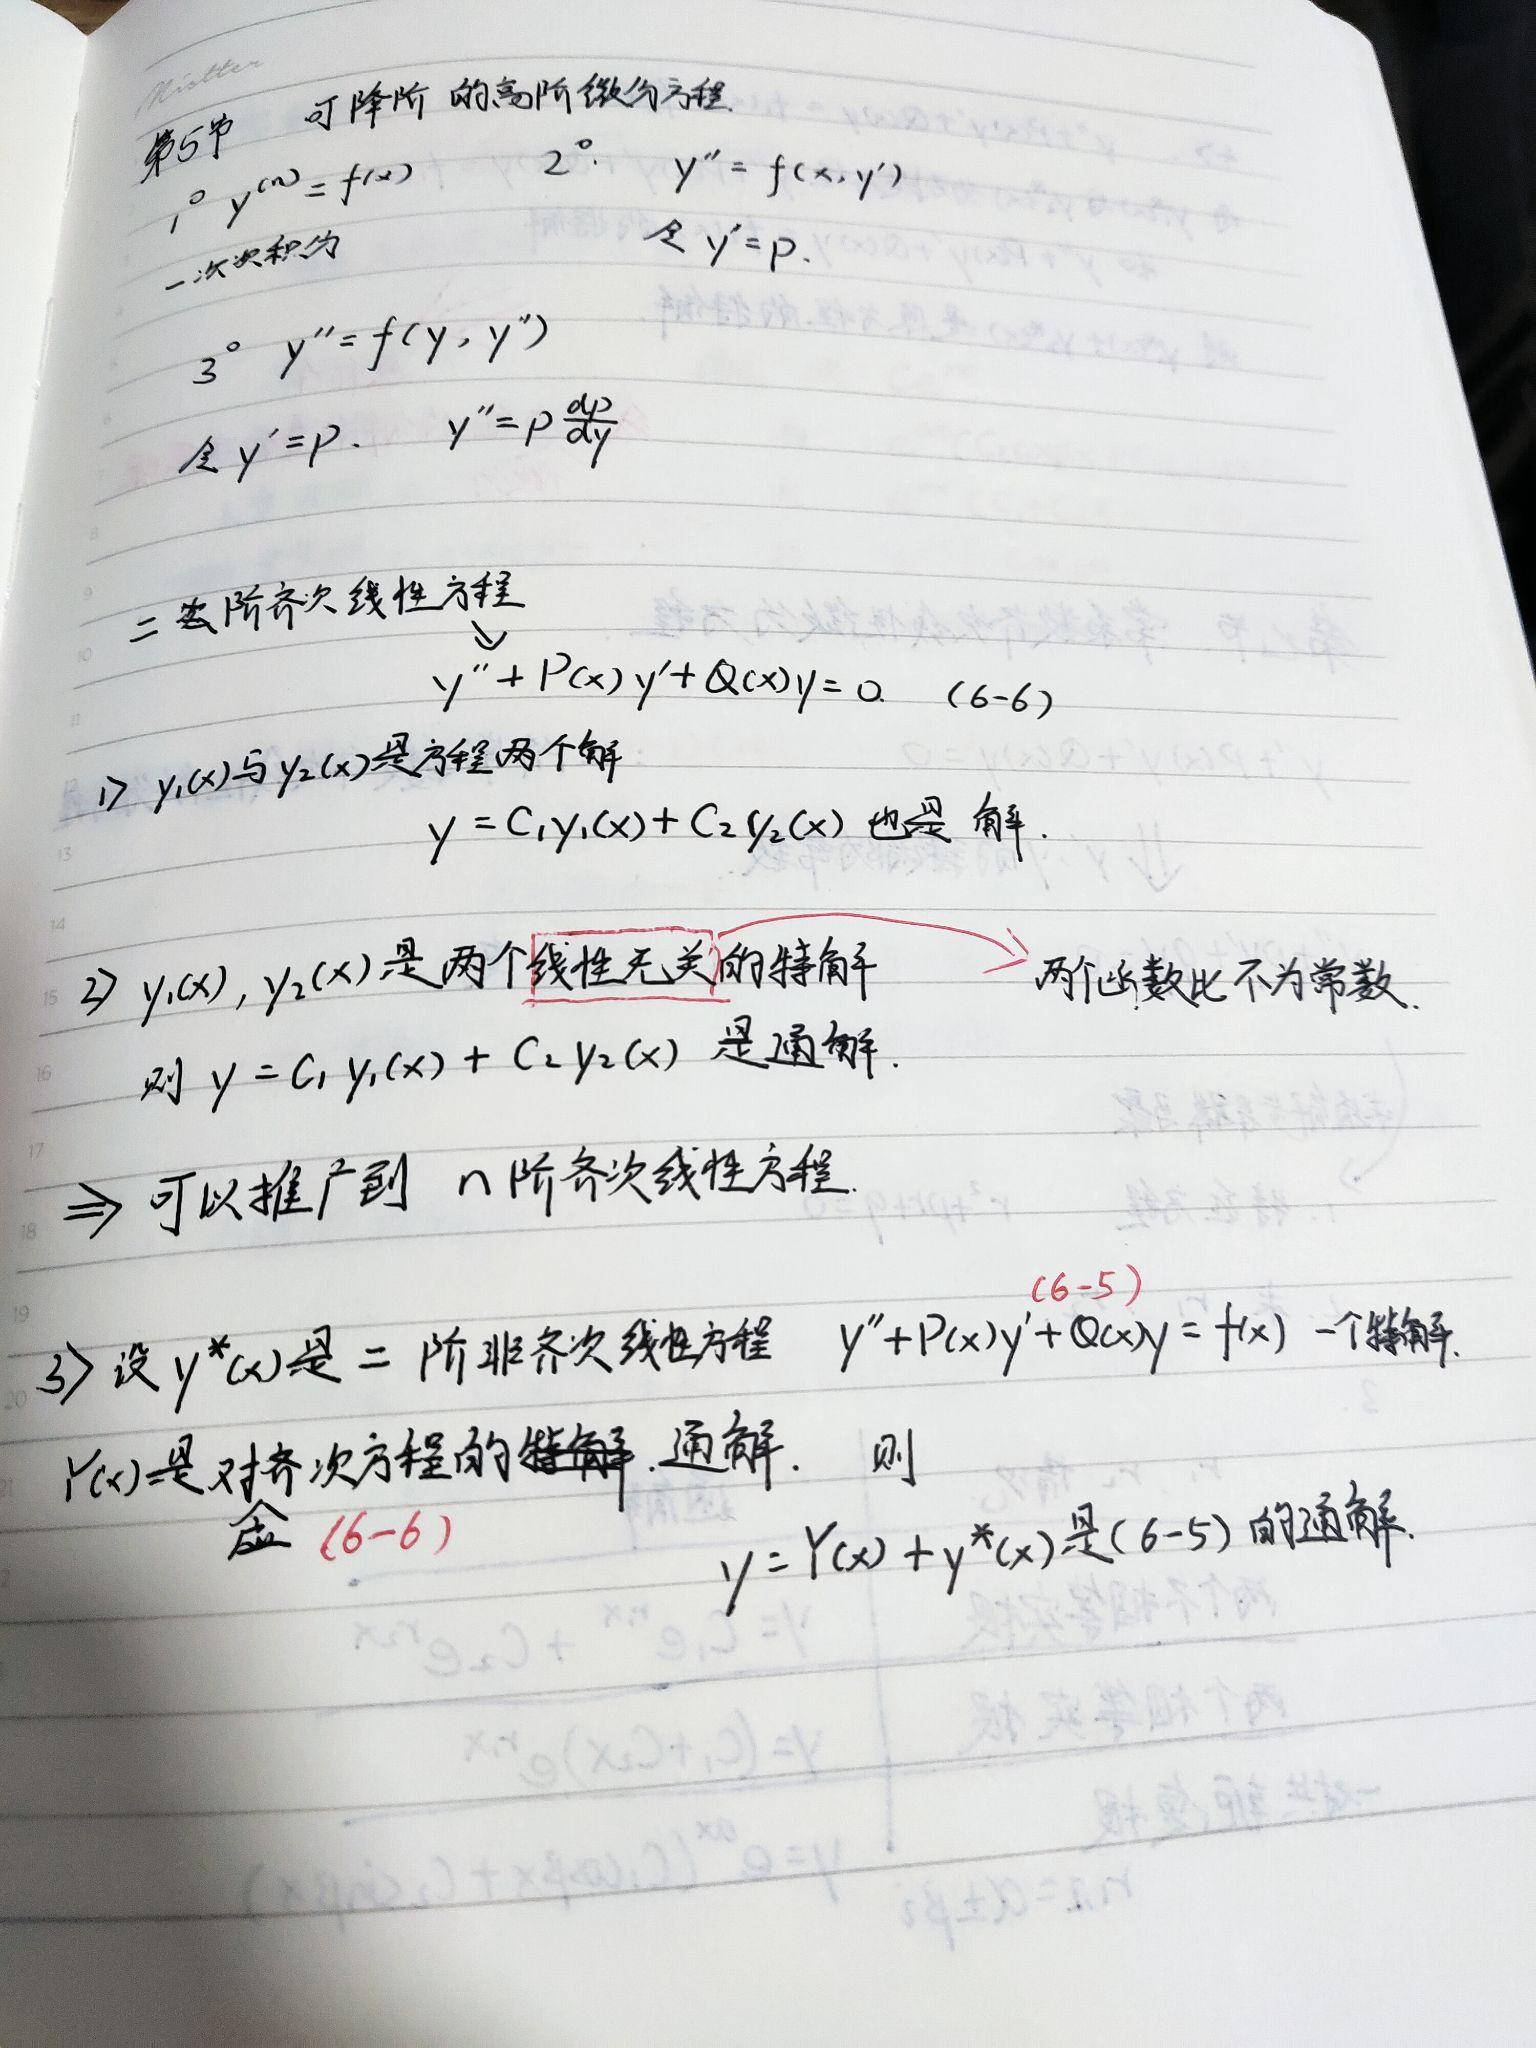 第5节 可降阶的高阶微分方程.
1° y⁽ⁿ⁾ = f(x) 2°. y″ = f(x, y′)
一次次积分 令 y′ = p.
3° y″ = f(y, y″)
令 y′ = p. y″ = p dp/dy
二阶齐次线性方程
y″ + P(x) y′ + Q(x) y = 0. (6-6)
1> y₁(x) 与 y₂(x) 是方程两个解
y = C₁y₁(x) + C₂y₂(x) 也是解.
2> y₁(x), y₂(x) 是两个线性无关的特解 两个函数比不为常数.
则 y = C₁y₁(x) + C₂y₂(x) 是通解.
⇒ 可以推广到 n阶齐次线性方程.
(6-5)
3> 设 y*(x) 是二阶非齐次线性方程 y″ + P(x)y′ + Q(x)y = f(x) 一个特解.
Y(x)是对齐次方程的特解.通解. 则
应 (6-6)
y = Y(x) + y*(x) 是(6-5)的通解.